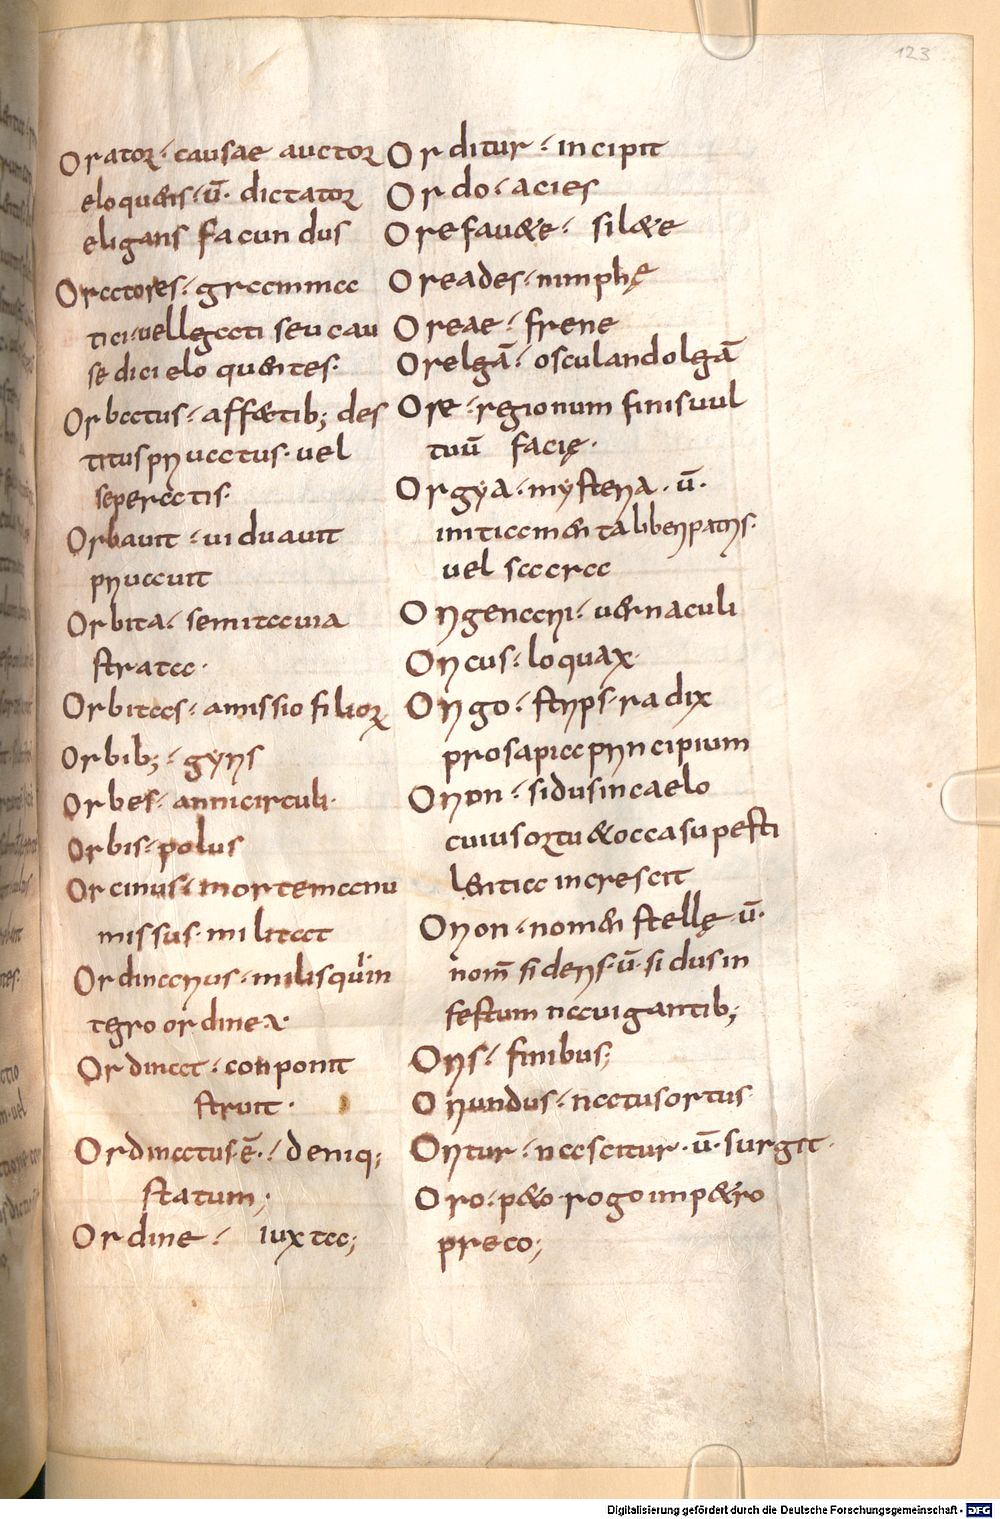 123
Orator· causae auctor
eloquens· ū· dictator
eligans facundus
Oratores· gramma
tici· vel legati seu cau
se dici eloquentes·
Orbatus· affectib; des
titus privatus· vel
seperatis·
Orbavit· viduavit
privavit
Orbita· semita via
strata·
Orbitas· amissio filior
Orbib;· gyris
Orbes· anni circuli·
Orbis· polus
Orcinus· mortem
missus· militat
Ordinarius· milis qui in
tegro ordine
Ordinat· conponit
struit·
Ordinatus ē· deniq;
statum;
Ordine· iuxta;
Orditur· incipit
Ordo· acies
Ore favete· silete
Oreades· nimphę
Oreae· frene
Ore legā· osculando legā
Ore· regionum finis vul
tuū facię·
Orgya· mysteria· ū·
initiamenta liberi patris·
vel sacra
Origenarii· vernaculi
Oricus· loquax·
Origo· stirps· radix
prosapia principium
Orion· sidus in caelo
cuius ortu & occasu pesti
lentia increscit
Orion· nomen stellę ū·
nom̄ sideris· ū· sidus in
festum navigantib;
Oris· finibus;
Oriundus· natus ortus
Oritur· nascitur· ū· surgit·
Oro· peto· rogo impetro
preco;
Digitalisierung gefördert durch die Deutsche Forschungsgemeinschaft - DFG